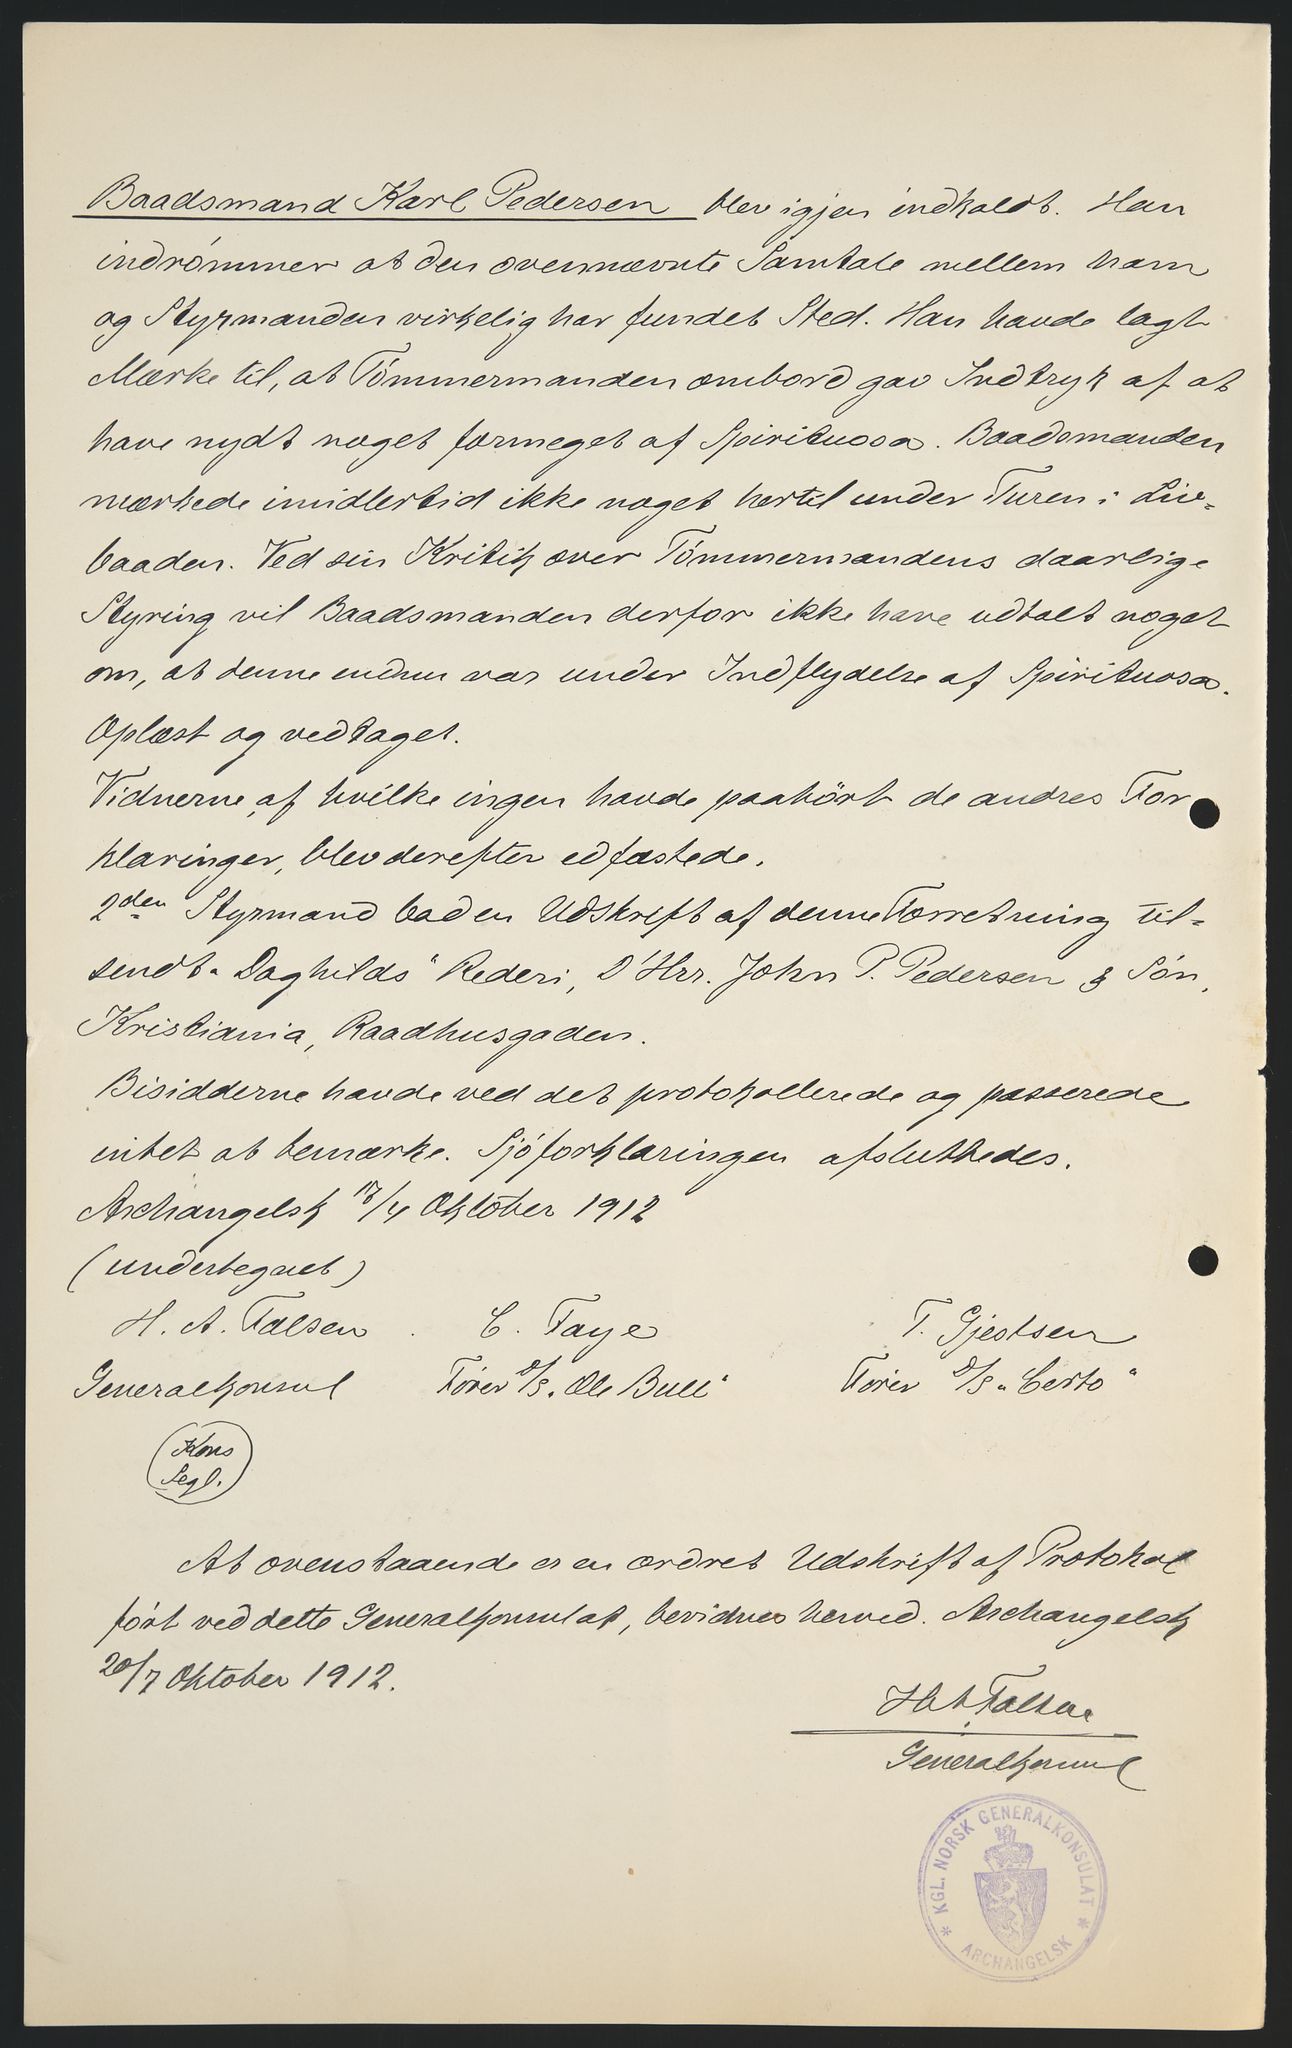 Baadsmand Karl Pedersen blev igjen indkaldt. Han
indrømmer at den ovennævnte Samtale mellem ham
og Styrmanden virkelig har fundet Sted. Han havde lagt
Mærke til, at Tømmermanden ombord gav Indtryk af at
have nydt noget formeget af Spirituosa. Baadsmanden
mærkede imidlertid ikke noget hertil under Turen i Liv-
baaden. Ved sin Kritik over Tømmermandens daarlige
Styring vil Baadsmanden derfor ikke have udtalt noget
om, at denne endnu var under Indflydelse af Spirituosa.
Oplæst og vedtaget.
Vidnerne, af hvilke ingen havde paahørt de andres For
klaringer, blev derefter edfæstede.
2den Styrmand bad en Udskrift af denne Forretning til-
sendt "Daghilds" Rederi, D'Hrr. John P. Pedersen & Søn,
Kristiania, Raadhusgaden.
Bisidderne havde ved det protokollerede og passerede
intet at bemærke. Sjøforklaringen afsluttedes.
Archangelsk 17/4 Oktober 1912
(undertegnet)
H. A. Falsen C. Faye T. Gjestsen
Generalkonsul Fører D/S "Ole Bull" Fører D/S "Certo"
(Kons
Segl.)
At ovenstaaende er en ordret Udskrift af Protokol
ført ved dette Generalkonsulat, bevidnes herved. Archangelsk
20/7 Oktober 1912.
H A Falsen
Generalkonsul
* KGL. NORSK GENERALKONSULAT *
ARCHANGELSK